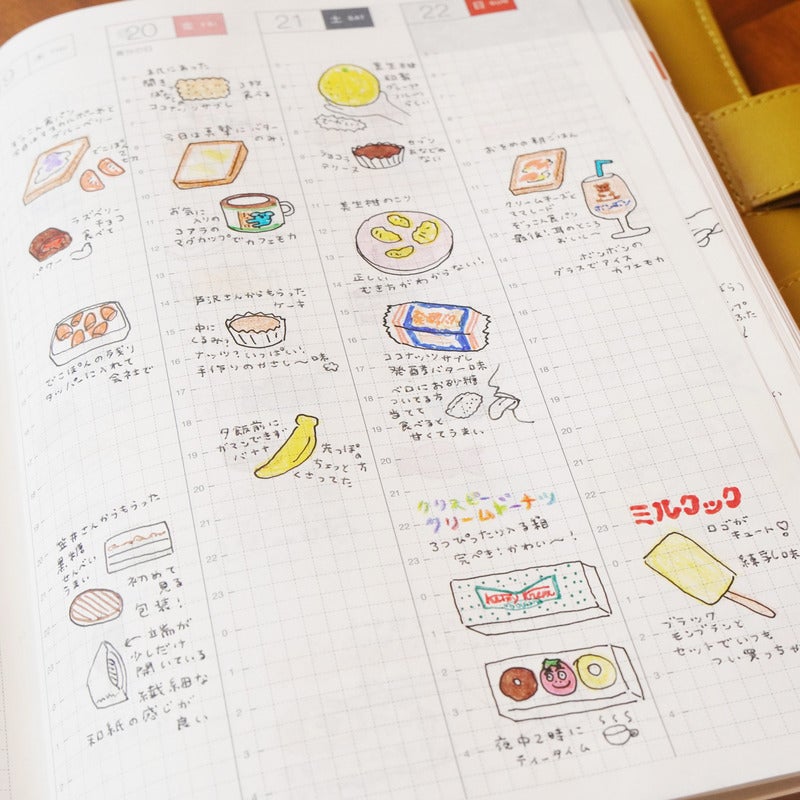 20
金 FRI
21
土 SAT
22
日 SUN
まえにあった
開き
ぱなし
3枚
食べる
ココナッツサブレ
今日は素敵にバター
のみ!
お気に
入りの
コアラの
マグカップでカフェモカ
芦沢さんからもらった
ケーキ
中に
くるみ?
ナッツ?いっぱい!
手作りのやさし〜味
夕飯前に
ガマンできず
バナナ
先っぽの
ちょっと方
くさってた
でこぽん
ラズベリー
チョコ
食べて
でこぽんの残り
タッパーに入れて
会社で
笠井さんからもらった
黒糖
せんべい
うまい
初めて
見る
包装!
立端が
少しだけ
開いている
繊細な
和紙の感じが
良い
美生柑
グレープ
フルーツ
らしい
ショコラ
美生柑のこり
正しい
むき方がわからない!
発酵バター
ココナッツサブレ
発酵バター味
ベロにお砂糖
ついてる方
当てて
食べると
甘くてうまい
クリスピードーナツ
クリームドーナツ
3つぴったり入る箱
完ぺき!かわい〜!
Krispy Kreme
夜中2時に
ティータイム
おそめの朝ごはん
クリームチーズと
ぞっこん食パン
最後に耳のところ
おいし〜
ボンボン
ボンボンの
グラスでアイス
カフェモカ
ミルクック
ロゴが
キュート♡
練乳味
ブラック
モンブランと
セットでいつも
つい買っちゃ